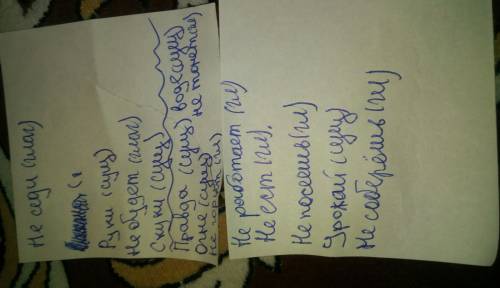 Не седи (глаг)
Руки (сущ)
Не будет (глаг)
Скуки (сущ)
Правда (сущ) воде (сущ)
Огне (сущ) не тонет (гл)
не горит (гл)
Не работает (гл)
Не ест (гл).
Не посеешь (гл)
Урожай (сущ)
Не соберёшь (гл)